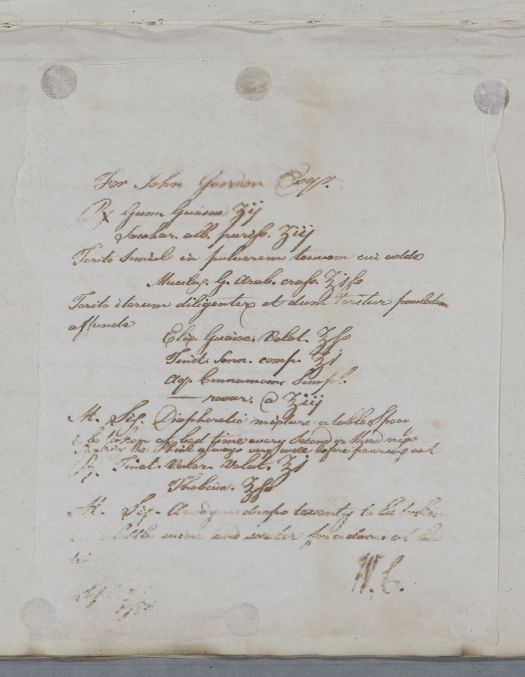 For John Gordon Esqr.
Rx Gum Guaiac ʒij
Sacchar. alb. puriss. ʒiij
Terito Simul in pulverem tenuem cui adde
Mucilag. G. Arab. crass. ʒiss
Terito iterum diligenter et dum teritur paulatim
affunde
Elix. Guaiac. Volat. ʒss
Tinct. Senn. comp. ʒi
Aq. Cinnamom. Simpl.
rosar. a ʒiij
M. Sig. Diaphoretic mixture a table Spoon
to be taken at bed time every Second or third nig
the Phial always very well before pouring out
Tinct. Valer. Volat. ʒi
Thebaic. ʒss
M. Sig. Anodyne drops twenty to be taken
little wine and water for a dose at be
W. C.